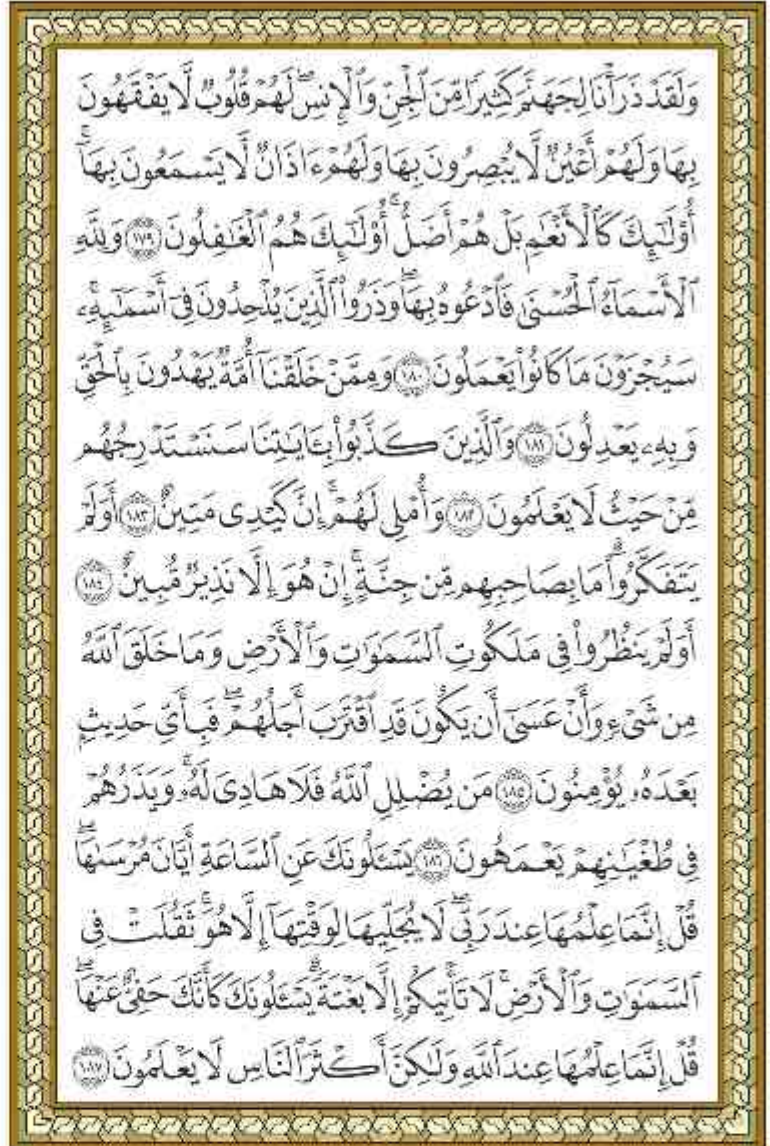 وَلَقَدْ ذَرَأْنَا لِجَهَنَّمَ كَثِيرًا مِّنَ ٱلْجِنِّ وَٱلْإِنسِۖ لَهُمْ قُلُوبٌ لَّا يَفْقَهُونَ
بِهَا وَلَهُمْ أَعْيُنٌ لَّا يُبْصِرُونَ بِهَا وَلَهُمْ ءَاذَانٌ لَّا يَسْمَعُونَ بِهَآۚ
أُو۟لَـٰٓئِكَ كَٱلْأَنْعَـٰمِ بَلْ هُمْ أَضَلُّۚ أُو۟لَـٰٓئِكَ هُمُ ٱلْغَـٰفِلُونَ ١٧٩ وَلِلَّهِ
ٱلْأَسْمَآءُ ٱلْحُسْنَىٰ فَٱدْعُوهُ بِهَاۖ وَذَرُوا۟ ٱلَّذِينَ يُلْحِدُونَ فِىٓ أَسْمَـٰٓئِهِۦۚ
سَيُجْزَوْنَ مَا كَانُوا۟ يَعْمَلُونَ ١٨٠ وَمِمَّنْ خَلَقْنَآ أُمَّةٌ يَهْدُونَ بِٱلْحَقِّ
وَبِهِۦ يَعْدِلُونَ ١٨١ وَٱلَّذِينَ كَذَّبُوا۟ بِـَٔايَـٰتِنَا سَنَسْتَدْرِجُهُم
مِّنْ حَيْثُ لَا يَعْلَمُونَ ١٨٢ وَأُمْلِى لَهُمْۚ إِنَّ كَيْدِى مَتِينٌ ١٨٣ أَوَلَمْ
يَتَفَكَّرُوا۟ۗ مَا بِصَاحِبِهِم مِّن جِنَّةٍۚ إِنْ هُوَ إِلَّا نَذِيرٌ مُّبِينٌ ١٨٤
أَوَلَمْ يَنظُرُوا۟ فِى مَلَكُوتِ ٱلسَّمَـٰوَٰتِ وَٱلْأَرْضِ وَمَا خَلَقَ ٱللَّهُ
مِن شَىْءٍ وَأَنْ عَسَىٰٓ أَن يَكُونَ قَدِ ٱقْتَرَبَ أَجَلُهُمْۖ فَبِأَىِّ حَدِيثٍۭ
بَعْدَهُۥ يُؤْمِنُونَ ١٨٥ مَن يُضْلِلِ ٱللَّهُ فَلَا هَادِىَ لَهُۥۚ وَيَذَرُهُمْ
فِى طُغْيَـٰنِهِمْ يَعْمَهُونَ ١٨٦ يَسْـَٔلُونَكَ عَنِ ٱلسَّاعَةِ أَيَّانَ مُرْسَىٰهَاۖ
قُلْ إِنَّمَا عِلْمُهَا عِندَ رَبِّىۖ لَا يُجَلِّيهَا لِوَقْتِهَآ إِلَّا هُوَۚ ثَقُلَتْ فِى
ٱلسَّمَـٰوَٰتِ وَٱلْأَرْضِۚ لَا تَأْتِيكُمْ إِلَّا بَغْتَةًۗ يَسْـَٔلُونَكَ كَأَنَّكَ حَفِىٌّ عَنْهَاۖ
قُلْ إِنَّمَا عِلْمُهَا عِندَ ٱللَّهِ وَلَـٰكِنَّ أَكْثَرَ ٱلنَّاسِ لَا يَعْلَمُونَ ١٨٧